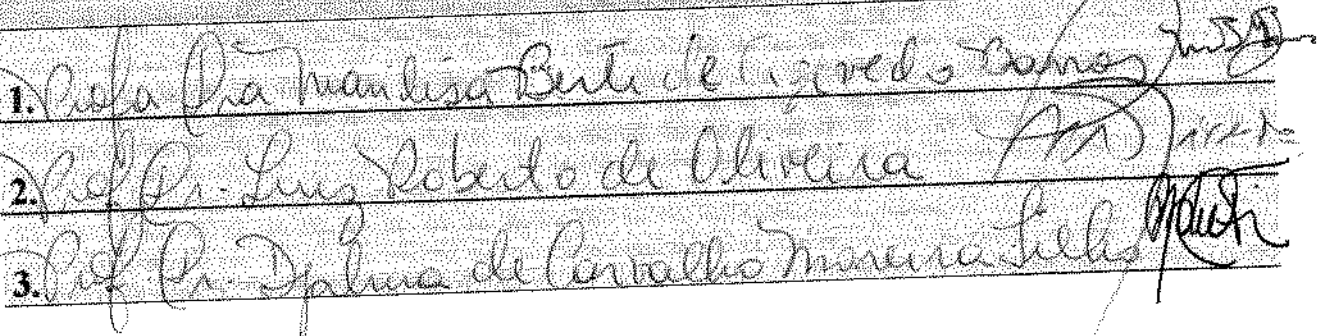 1. Profa Dra Marilisa Berti de Azevedo Barros
2. Prof. Dr. Luiz Roberto de Oliveira
3. Prof. Dr. Djalma de Carvalho Moreira Filho